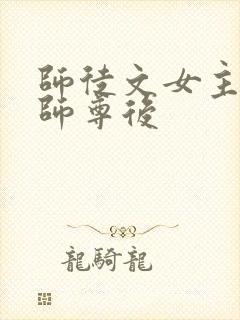 師徒文女主
師尊後
龍騎龍